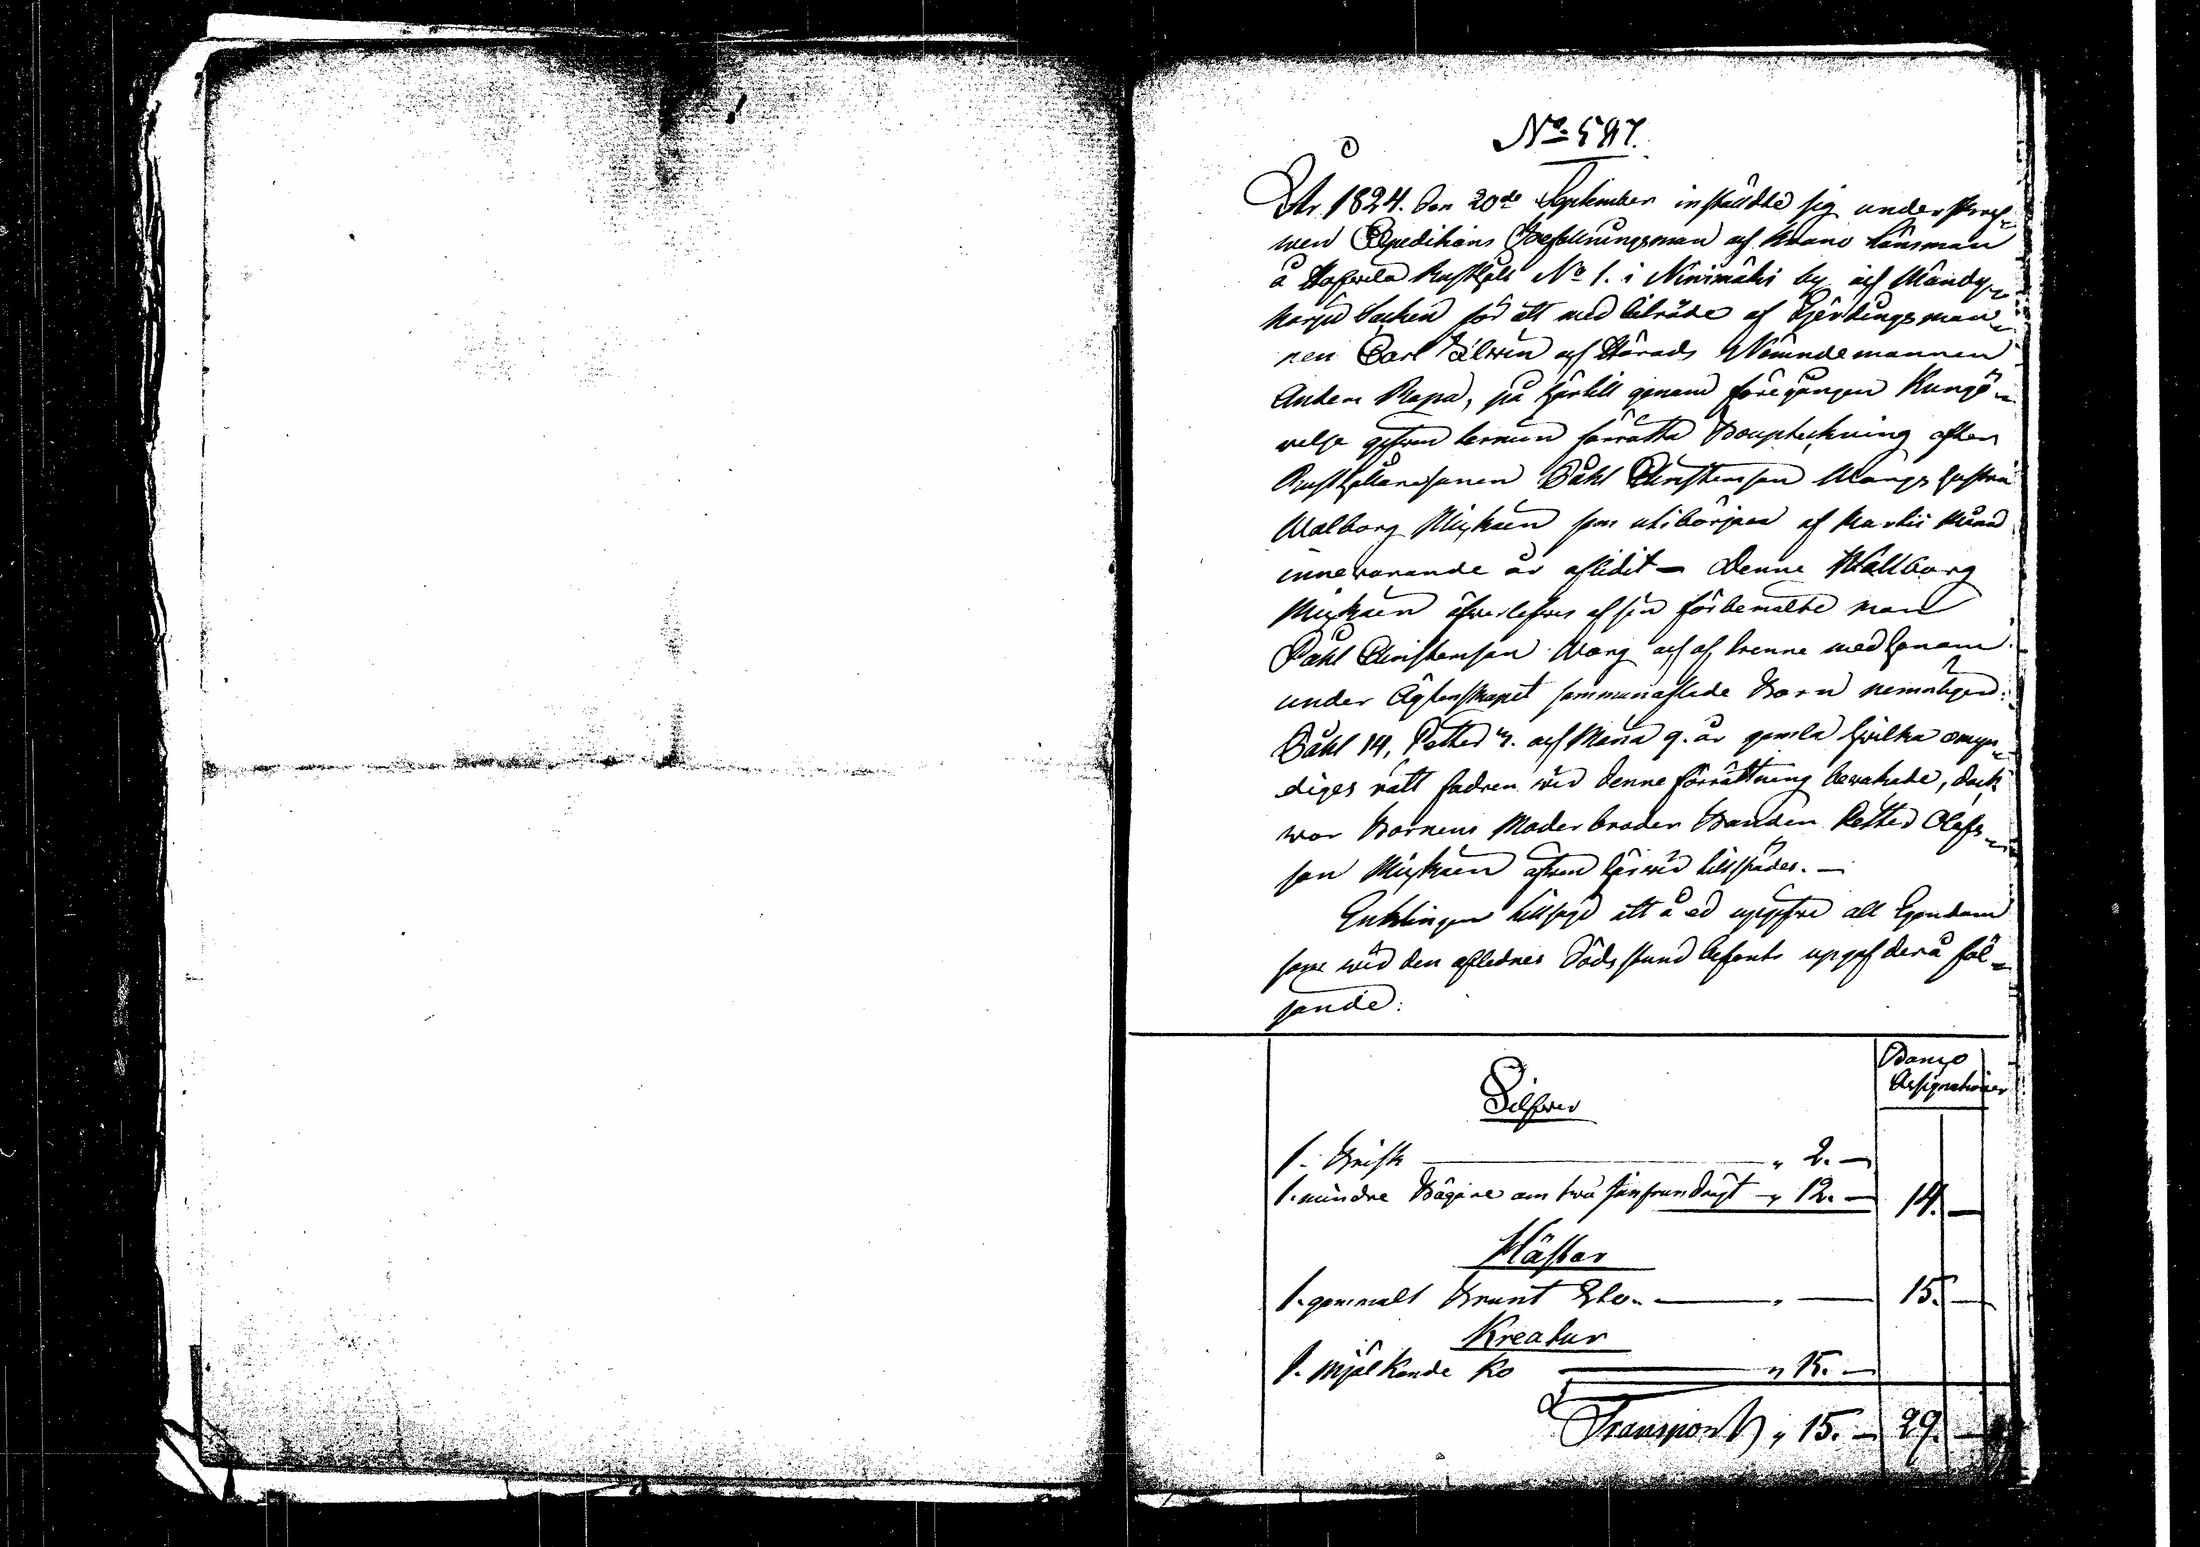 No 587.
År 1824. den 20de September instäldte sig underskref=
wen Expeditions Befallningsman och Krono Länsman
å Hofwila Rusthåll No 1. i Niinimäki by och Mändy=
harju Sochen för att med biträde af Fjerdingsman=
nen Carl Silwin och Härads Nämndemannen
Anders Ropa, på härtill genom föregången Kungö=
relse gifwen termin förrätta Bouptekning efter
Rusthållaresonen Påhl Christersson Wargs hustru
Walborg Miskuin som uti början af Martii Månad
innevarande år aflidit — Denne Wallborg
Miskuin öfwerlefwes af sin förbemälte man
Påhl Christersson Warg och af trenne med honom
under Ägtenskapet sammanaflade Barn nemnligen:
Påhl 14, Petter och Maria 9. år gamla hwilka omyn=
diges rätt fadren wid denne förrättning bewakade, dock
war Barnens Moder broder Bonden Petter Olofs=
son Miskuin äfwen härwid tillstädes. —
Enklingen tillsagd att å ed uppgifwa all Egendom
som wid den aflednes Dödsstund befants uppgaf derå föl=
jande:
Banco
Assignationer
Silfwer
1. Brisk — " 2. —
1. mindre Bägare om två jumfrurs drygt — " 12. — 14. —
Hästar
1. gammalt Brunt Sto. — " — 15. —
Kreatur
1. Mjölkande Ko — " 15. —
Transport " 15. — 29. —